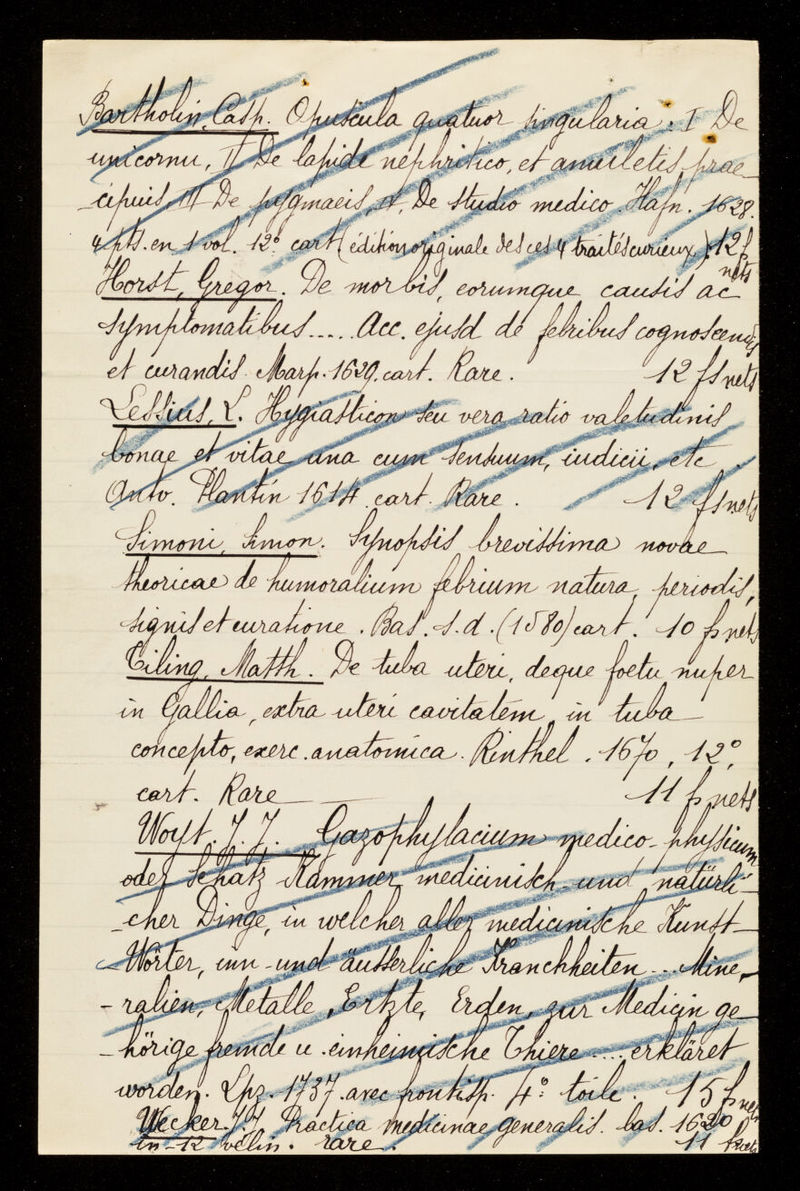 Bartholin, Casp. Opuscula quatuor singularia: I De
unicornu, II De lapide nephritico, et amuletis prae-
-cipuis, III De pygmaeis, IV, De studio medico. Hafn. 1628.
4 pts. en 1 vol. 12º cart (édition originale de ces 4 traités curieux). 12 f
nets
Horst, Gregor. De morbis, eorumque causis ac
symptomatibus..... Acc. ejusd de febribus cognoscendis
et curandis. Marp. 1629. cart. Rare. 12 fs nets
Lessius, L. Hygiasticon seu vera ratio valetudinis
bonae et vitae una cum sensuum, iudicii, etc
Antv. Plantin 1614 cart. Rare. 12 fs nets
Simoni, Simon. Synopsis brevissima novae
theoricae de humoralium febrium natura, periodis,
signis et curatione. Bas. s.d. (1580) cart. 10 fs nets
Tiling, Matth. De tuba uteri, deque foetu nuper
in Gallia, extra uteri cavitatem, in tuba
concepto, exerc. anatomica. Rinthel. 1670, 12º,
cart. Rare 11 fs nets
Woyt. J. J. Gazophylacium medico-physicum
oder Schatz Kammer medicinisch- und natürli-
-cher Dinge, in welcher aller medicinische Kunst-
-Wörter, inn-und äusserliche Kranckheiten... Mine,-
-ralien, Metalle, Ertzte, Erden, zur Medicin ge-
-hörige fremde u. einheimische Thiere.... erkläret
worden. Lpz. 1737. avec frontisp. 4º toile. 15 f nets
Wecker. J. J. Practica medicinae generalis. bas. 1620
in-12 vélin. rare. 11 f nets